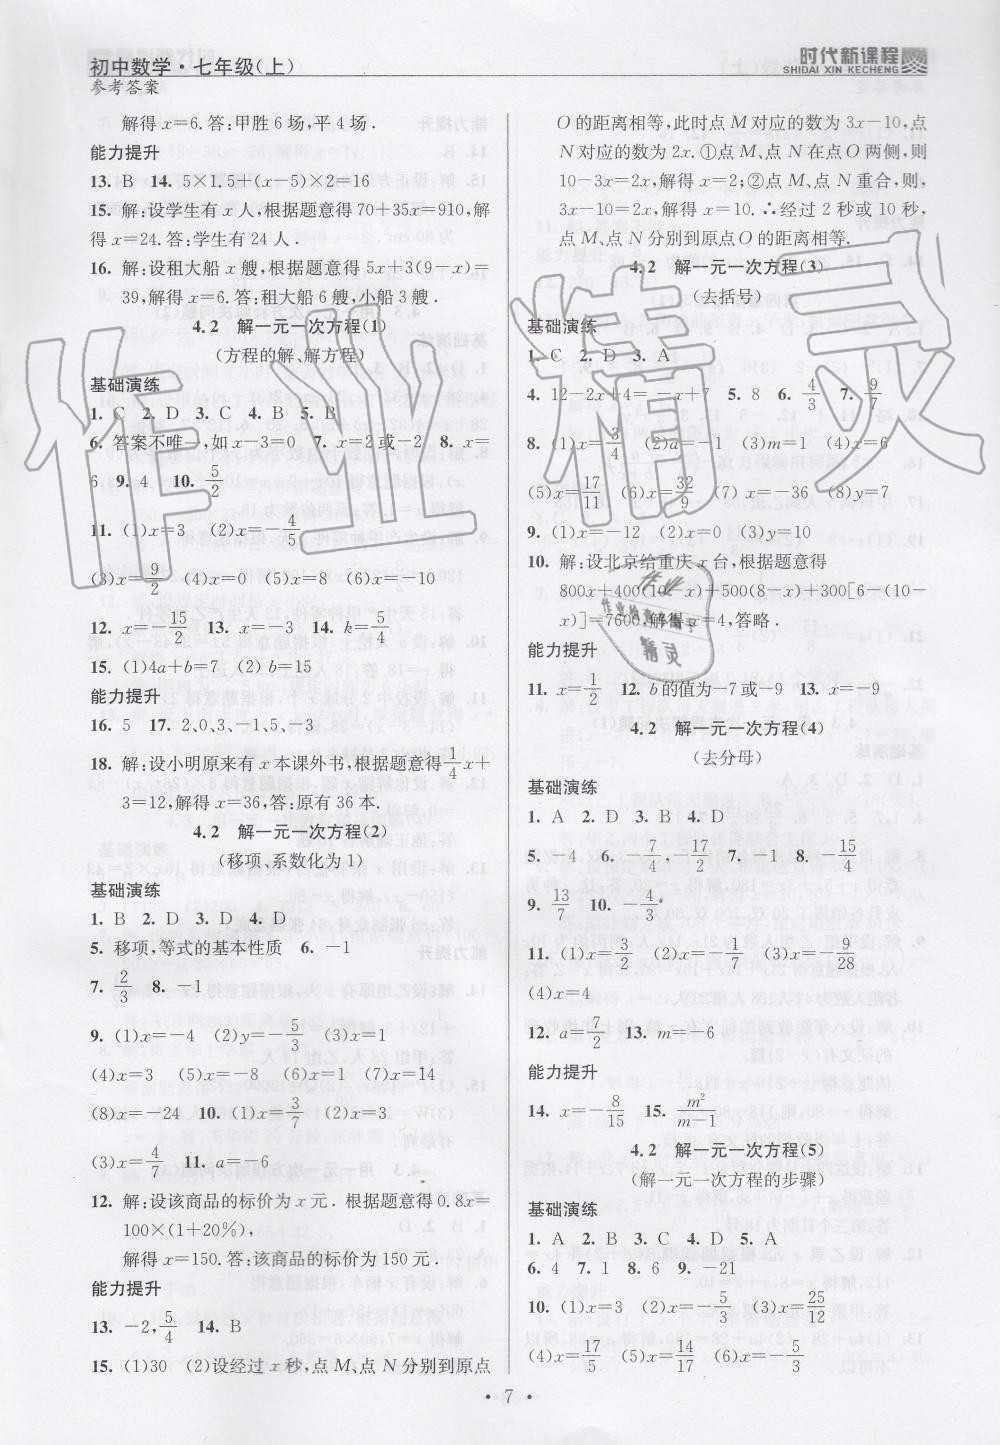 初中数学·七年级(上)
参考答案
时代新课程
SHIDAI XIN KECHENG
解得 x=6. 答:甲胜 6 场,平 4 场.
能力提升
13. B 14. 5×1.5+(x-5)×2=16
15. 解:设学生有 x 人,根据题意得70+35x=910,解
得 x=24. 答:学生有 24 人.
16. 解:设租大船 x 艘,根据题意得 5x+3(9-x)=
39,解得 x=6. 答:租大船 6 艘,小船 3 艘.
4.2 解一元一次方程(1)
(方程的解、解方程)
基础演练
1. C 2. D 3. C 4. B 5. B
6. 答案不唯一,如 x-3=0 7. x=2或-2 8. x=
6 9. 4 10. 5/2
11. (1)x=3 (2)x=-4/5
(3)x=9/2 (4)x=0 (5)x=8 (6)x=-10
12. x=-15/2 13. x=-3 14. k=5/4
15. (1)4a+b=7 (2) b=15
能力提升
16. 5 17. 2、0、3、-1、5、-3
18. 解:设小明原来有 x 本课外书,根据题意得1/4x+
3=12,解得 x=36,答:原有 36 本.
4.2 解一元一次方程(2)
(移项、系数化为 1)
基础演练
1. B 2. D 3. D 4. D
5. 移项,等式的基本性质 6. -1
7. 2/3 8. -1
9. (1)x=-4 (2)y=-5/3 (3)x=1
(4)x=3 (5)x=-8 (6)x=1 (7)x=14
(8)x=-24 10. (1)x=3/7 (2)x=3
(3)x=4/7 11. a=-6
12. 解:设该商品的标价为 x 元. 根据题意得0.8x=
100×(1+20%),
解得 x=150. 答:该商品的标价为 150 元.
能力提升
13. -2,5/4 14. B
15. (1)30 (2)设经过 x 秒,点 M、点 N 分别到原点
O 的距离相等,此时点 M 对应的数为 3x-10,点
N 对应的数为 2x. ①点 M、点 N 在点 O 两侧,则
10-3x=2x,解得 x=2;②点 M、点 N 重合,则,
3x-10=2x,解得 x=10. ∴经过 2 秒或 10 秒,
点 M、点 N 分别到原点O 的距离相等.
4.2 解一元一次方程(3)
(去括号)
基础演练
1. C 2. D 3. A
4. 12-2x+4=-x+7 5. 8 6. 4/3 7. 9/7
8. (1)x=3/4 (2)a=-1 (3)m=1 (4)x=6
(5)x=17/11 (6)x=32/9 (7) x=-36 (8)y=7
9. (1)x=-12 (2)x=0 (3)y=10
10. 解:设北京给重庆 x 台,根据题意得
800x+400(10-x)+500(8-x)+300[6-(10-
x)]=7600,解得 x=4,答略.
能力提升
11. x=1/2 12. b的值为-7或-9 13. x=-9
4.2 解一元一次方程(4)
(去分母)
基础演练
1. A 2. D 3. B 4. D
5. -4 6. -7/4,-17/2 7. -1 8. -15/4
9. 13/7 10. -4/3
11. (1)x=3/2 (2)x=-1/7 (3)x=-9/28
(4)x=4
12. a=7/2 13. m=-6
能力提升
14. x=-8/15 15. m²/(m-1)
4.2 解一元一次方程(5)
(解一元一次方程的步骤)
基础演练
1. A 2. B 3. C 4. D 5. A
6. 4 7. 1 8. 6 9. -21
10. (1)x=3 (2)x=-5/3 (3)x=25/12
(4)x=17/5 (5)x=14/17 (6)x=-5/3
· 7 ·
作业精灵